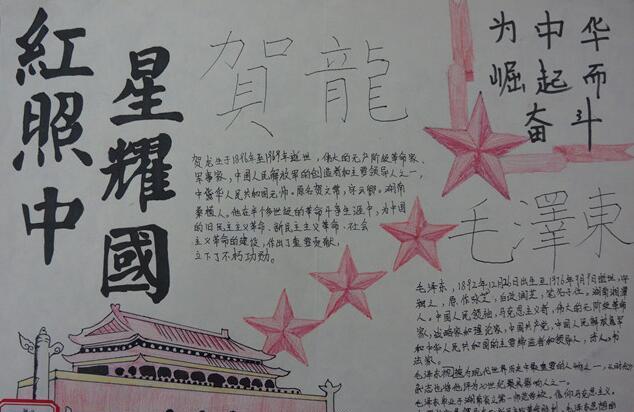 紅照中
星耀國
賀龍
为中华
崛起而
奋斗
贺龙生于1896年至1969年逝世，伟大的无产阶级革命家、
军事家，中国人民解放军的创造者和主要领导人之一，
中华人民共和国元帅。原名贺文常，字云卿，湖南
桑植人。他在半个多世纪的革命斗争生涯中，为中国
的旧民主主义革命、新民主主义革命、社会
主义革命的建设，作出了重要贡献，
立下了不朽功勋。
毛澤東
毛泽东，1892年12月26日出生至1976年9月9日逝世，字
润之，原作咏芝，后改润芝，笔名子任。湖南湘潭
人。中国人民领袖，马克思主义者，伟大的无阶级革命
家，战略家和理论家，中国共产党，中国人民解放军
和中华人民共和国的主要缔造者和领导人，诗人，书
法家。
毛泽东被视为现代世界历史中最重要的人物之一，时代
杂志也将他评为20世纪最具影响人之一。
毛泽东毕业于湖南省立第一师范学校，信仰马克思主义，
毛泽东思想的